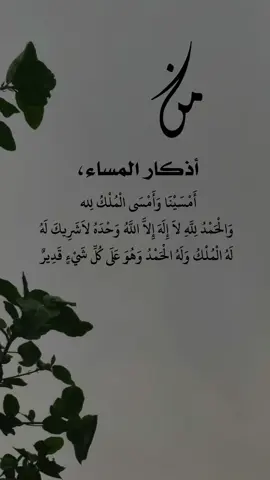 من
أذكار المساء،
أَمْسَيْنَا وَأَمْسَى الْمُلْكُ لله
وَالْحَمْدُ لِلَّهِ لاَ إِلَهَ إِلاَّ اللَّهُ وَحْدَهُ لاَشَرِيكَ لَهُ
لَهُ الْمُلْكُ وَلَهُ الْحَمْدُ وَهُوَ عَلَى كُلِّ شَيْءٍ قَدِيرٌ